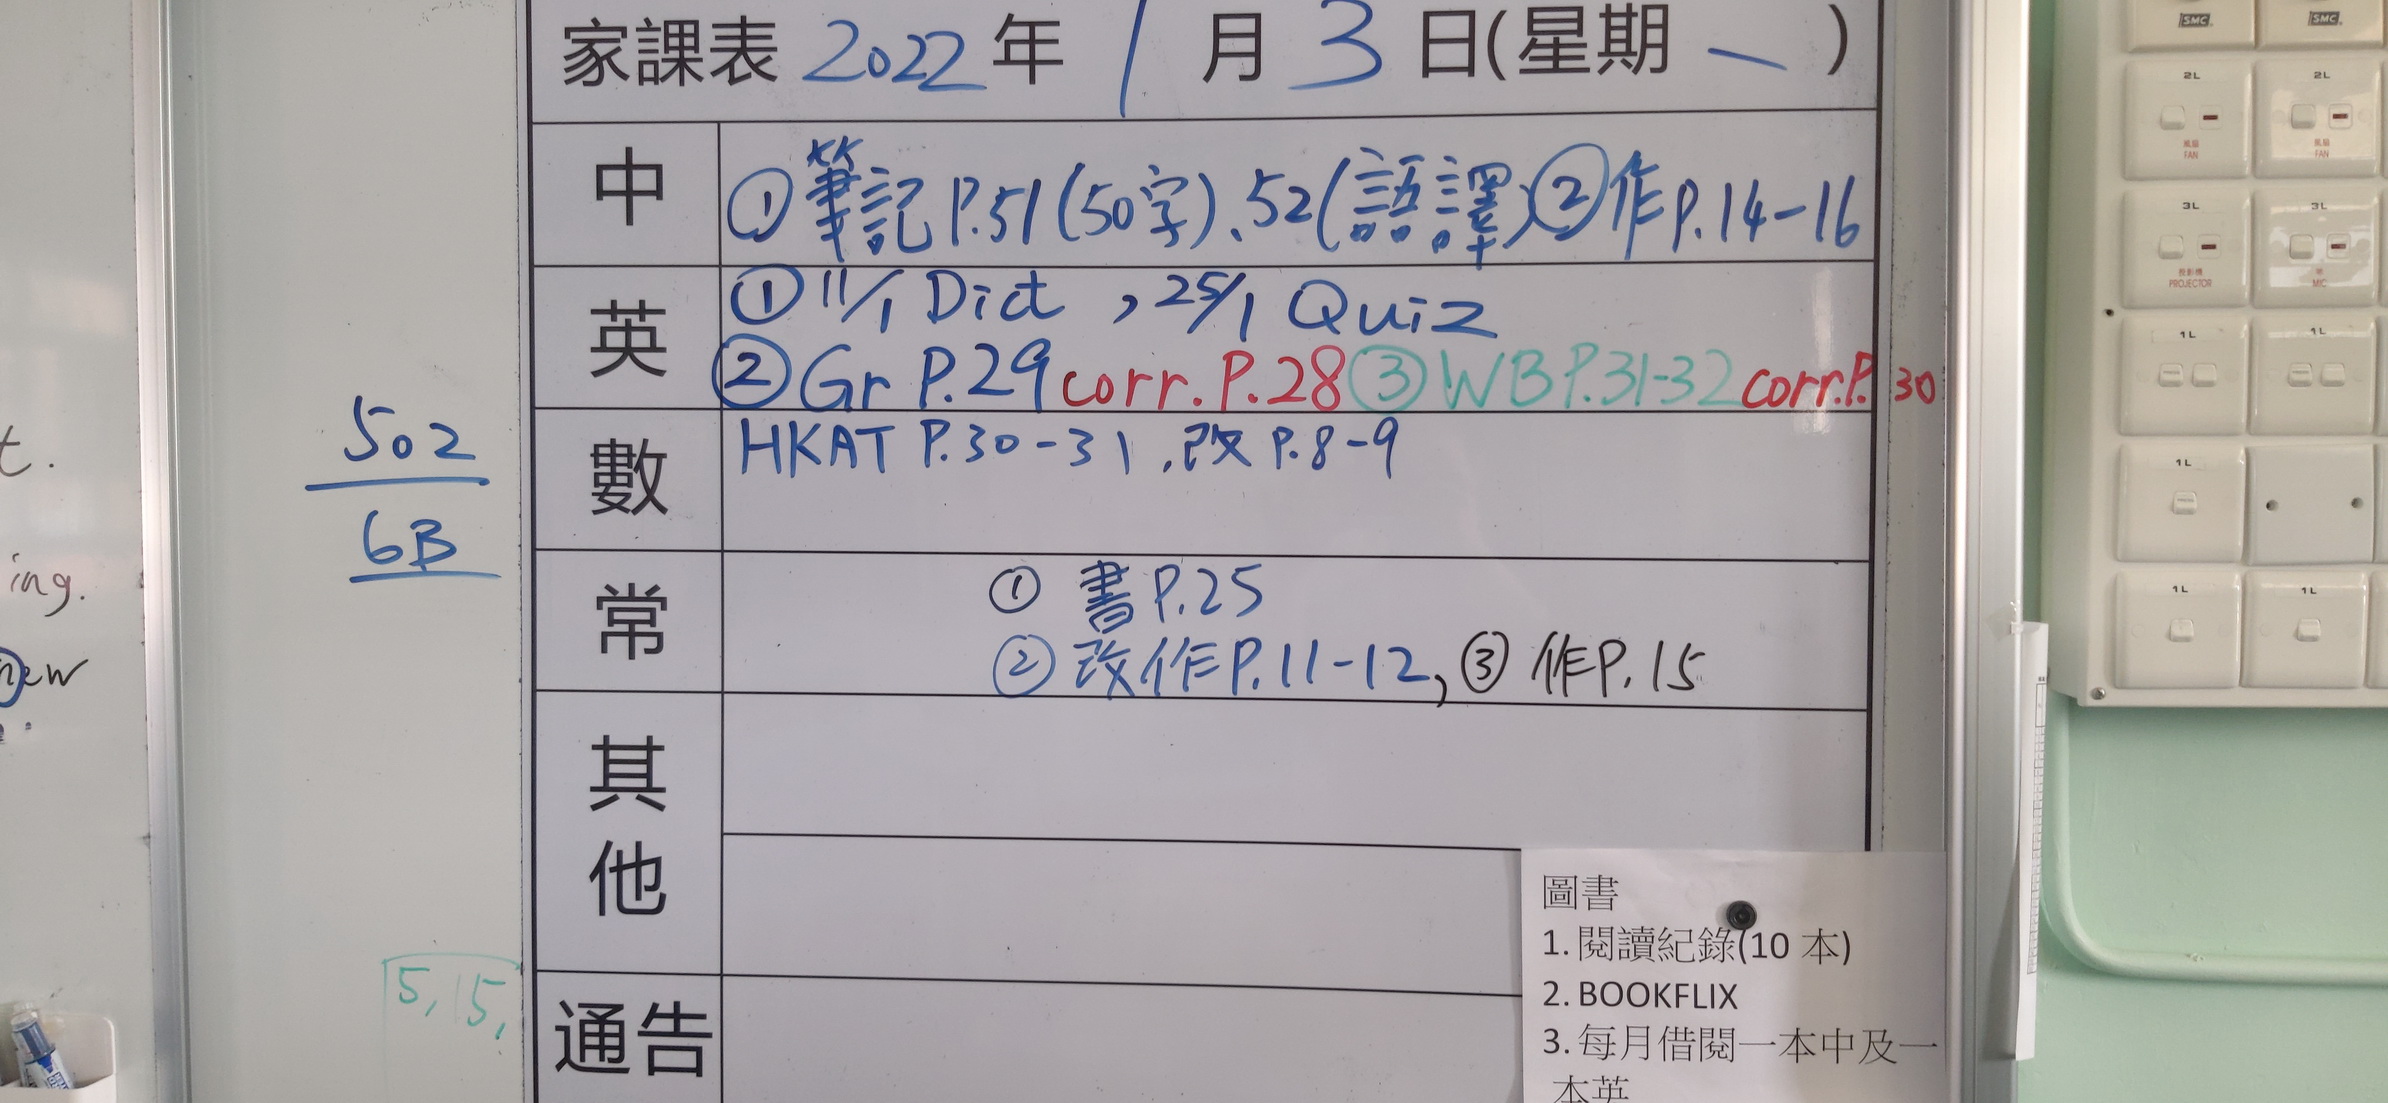 家課表 2022年 1月 3日(星期 一 )
中
①筆記P.51(50字)、52(語譯)②作P.14-16
英
①11/1 Dict , 25/1 Quiz
②Gr P.29 corr. P.28 ③WB P.31-32 corr. P. 30
數
HKAT P.30-31 , 改 P.8-9
常
① 書P.25
② 改作P.11-12, ③ 作P.15
其他
通告
圖書
1. 閱讀紀錄(10 本)
2. BOOKFLIX
3. 每月借閱一本中及一
本英
502
6B
5, 15,
t.
ing.
new
SMC
SMC
2L
2L
風扇
FAN
風扇
FAN
3L
3L
投影機
PROJECTOR
MIC
1L
1L
1L
1L
1L